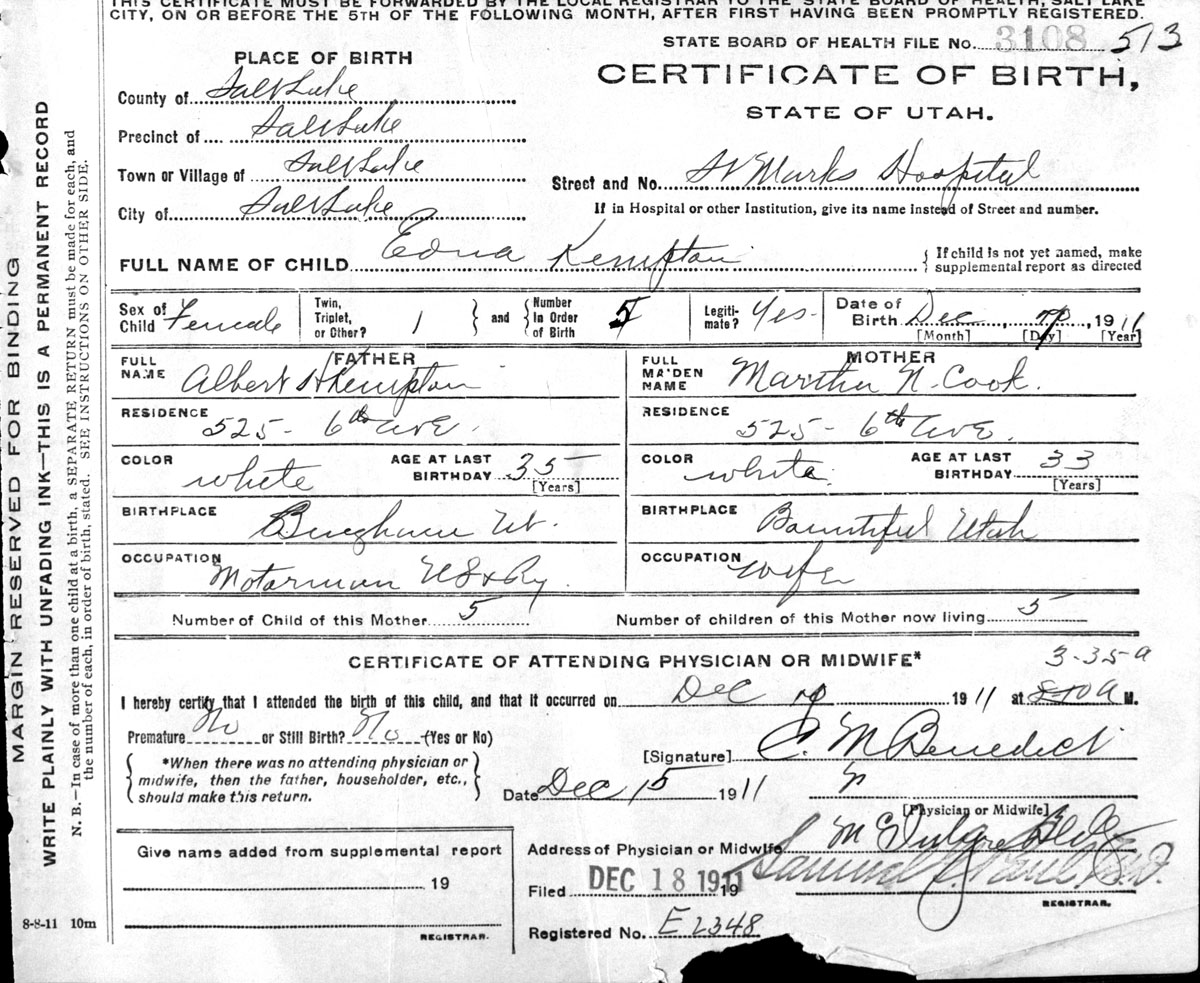 THIS CERTIFICATE MUST BE FORWARDED BY THE LOCAL REGISTRAR TO THE STATE BOARD OF HEALTH, SALT LAKE
CITY, ON OR BEFORE THE 5TH OF THE FOLLOWING MONTH, AFTER FIRST HAVING BEEN PROMPTLY REGISTERED.
STATE BOARD OF HEALTH FILE No. 3108 513
PLACE OF BIRTH
CERTIFICATE OF BIRTH,
STATE OF UTAH.
County of Salt Lake
Precinct of Salt Lake
Town or Village of Salt Lake
Street and No. St Marks Hospital
City of Salt Lake
If in Hospital or other Institution, give its name instead of Street and number.
FULL NAME OF CHILD Edna Kempton
If child is not yet named, make
supplemental report as directed
Sex of Child Female
Twin, Triplet, or Other? 1
and Number In Order of Birth 5
Legitimate? Yes
Date of Birth Dec 1911
[Month] [Day] [Year]
FATHER
FULL NAME Albert H Kempton
MOTHER
FULL MAIDEN NAME Martha N. Cook.
RESIDENCE 525- 6th Ave.
RESIDENCE 525- 6th Ave.
COLOR white
AGE AT LAST BIRTHDAY 35
[Years]
COLOR white
AGE AT LAST BIRTHDAY 33
[Years]
BIRTHPLACE Bingham Ut.
BIRTHPLACE Bountiful Utah
OCCUPATION Motorman
OCCUPATION Wife
Number of Child of this Mother 5
Number of children of this Mother now living 5
CERTIFICATE OF ATTENDING PHYSICIAN OR MIDWIFE*
3-35a
I hereby certify that I attended the birth of this child, and that it occurred on Dec 1911 at 8-10 a M.
Premature No or Still Birth? No (Yes or No)
[Signature] C. M Benedict
*When there was no attending physician or
midwife, then the father, householder, etc.,
should make this return.
Date Dec 15 1911
[Physician or Midwife]
Address of Physician or Midwife
Give name added from supplemental report
19
Filed DEC 18 1911 19
REGISTRAR.
Registered No. E 2348
REGISTRAR.
8-8-11 10m
MARGIN RESERVED FOR BINDING
WRITE PLAINLY WITH UNFADING INK—THIS IS A PERMANENT RECORD
N. B.—In case of more than one child at a birth, a SEPARATE RETURN must be made for each, and
the number of each, in order of birth, stated. SEE INSTRUCTIONS ON OTHER SIDE.